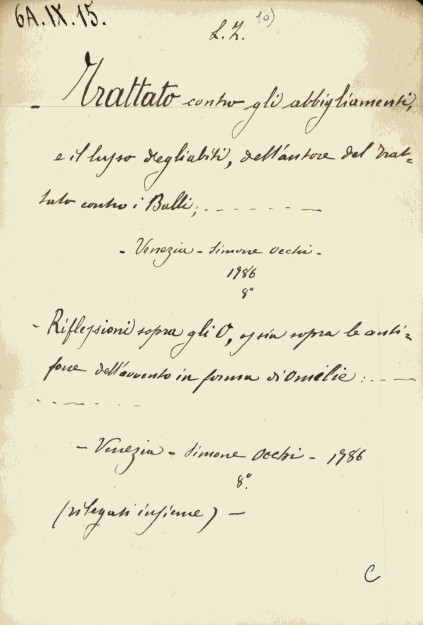 6A.IX.15.
L.Z. 10)
- Trattato contro gli abbigliamenti,
e il lusso degliabiti, dell'autore del Trat=
tato contro i Balli;. - - - - - -
- Venezia - Simone Occhi -
1786
8°
- Riflessioni sopra gli O, ossia sopra le anti=
fone dell'avvento in forma di Omelie: . - -
- - - - - - -
- Venezia - Simone Occhi - 1786
8°.
(rilegati insieme) -
C